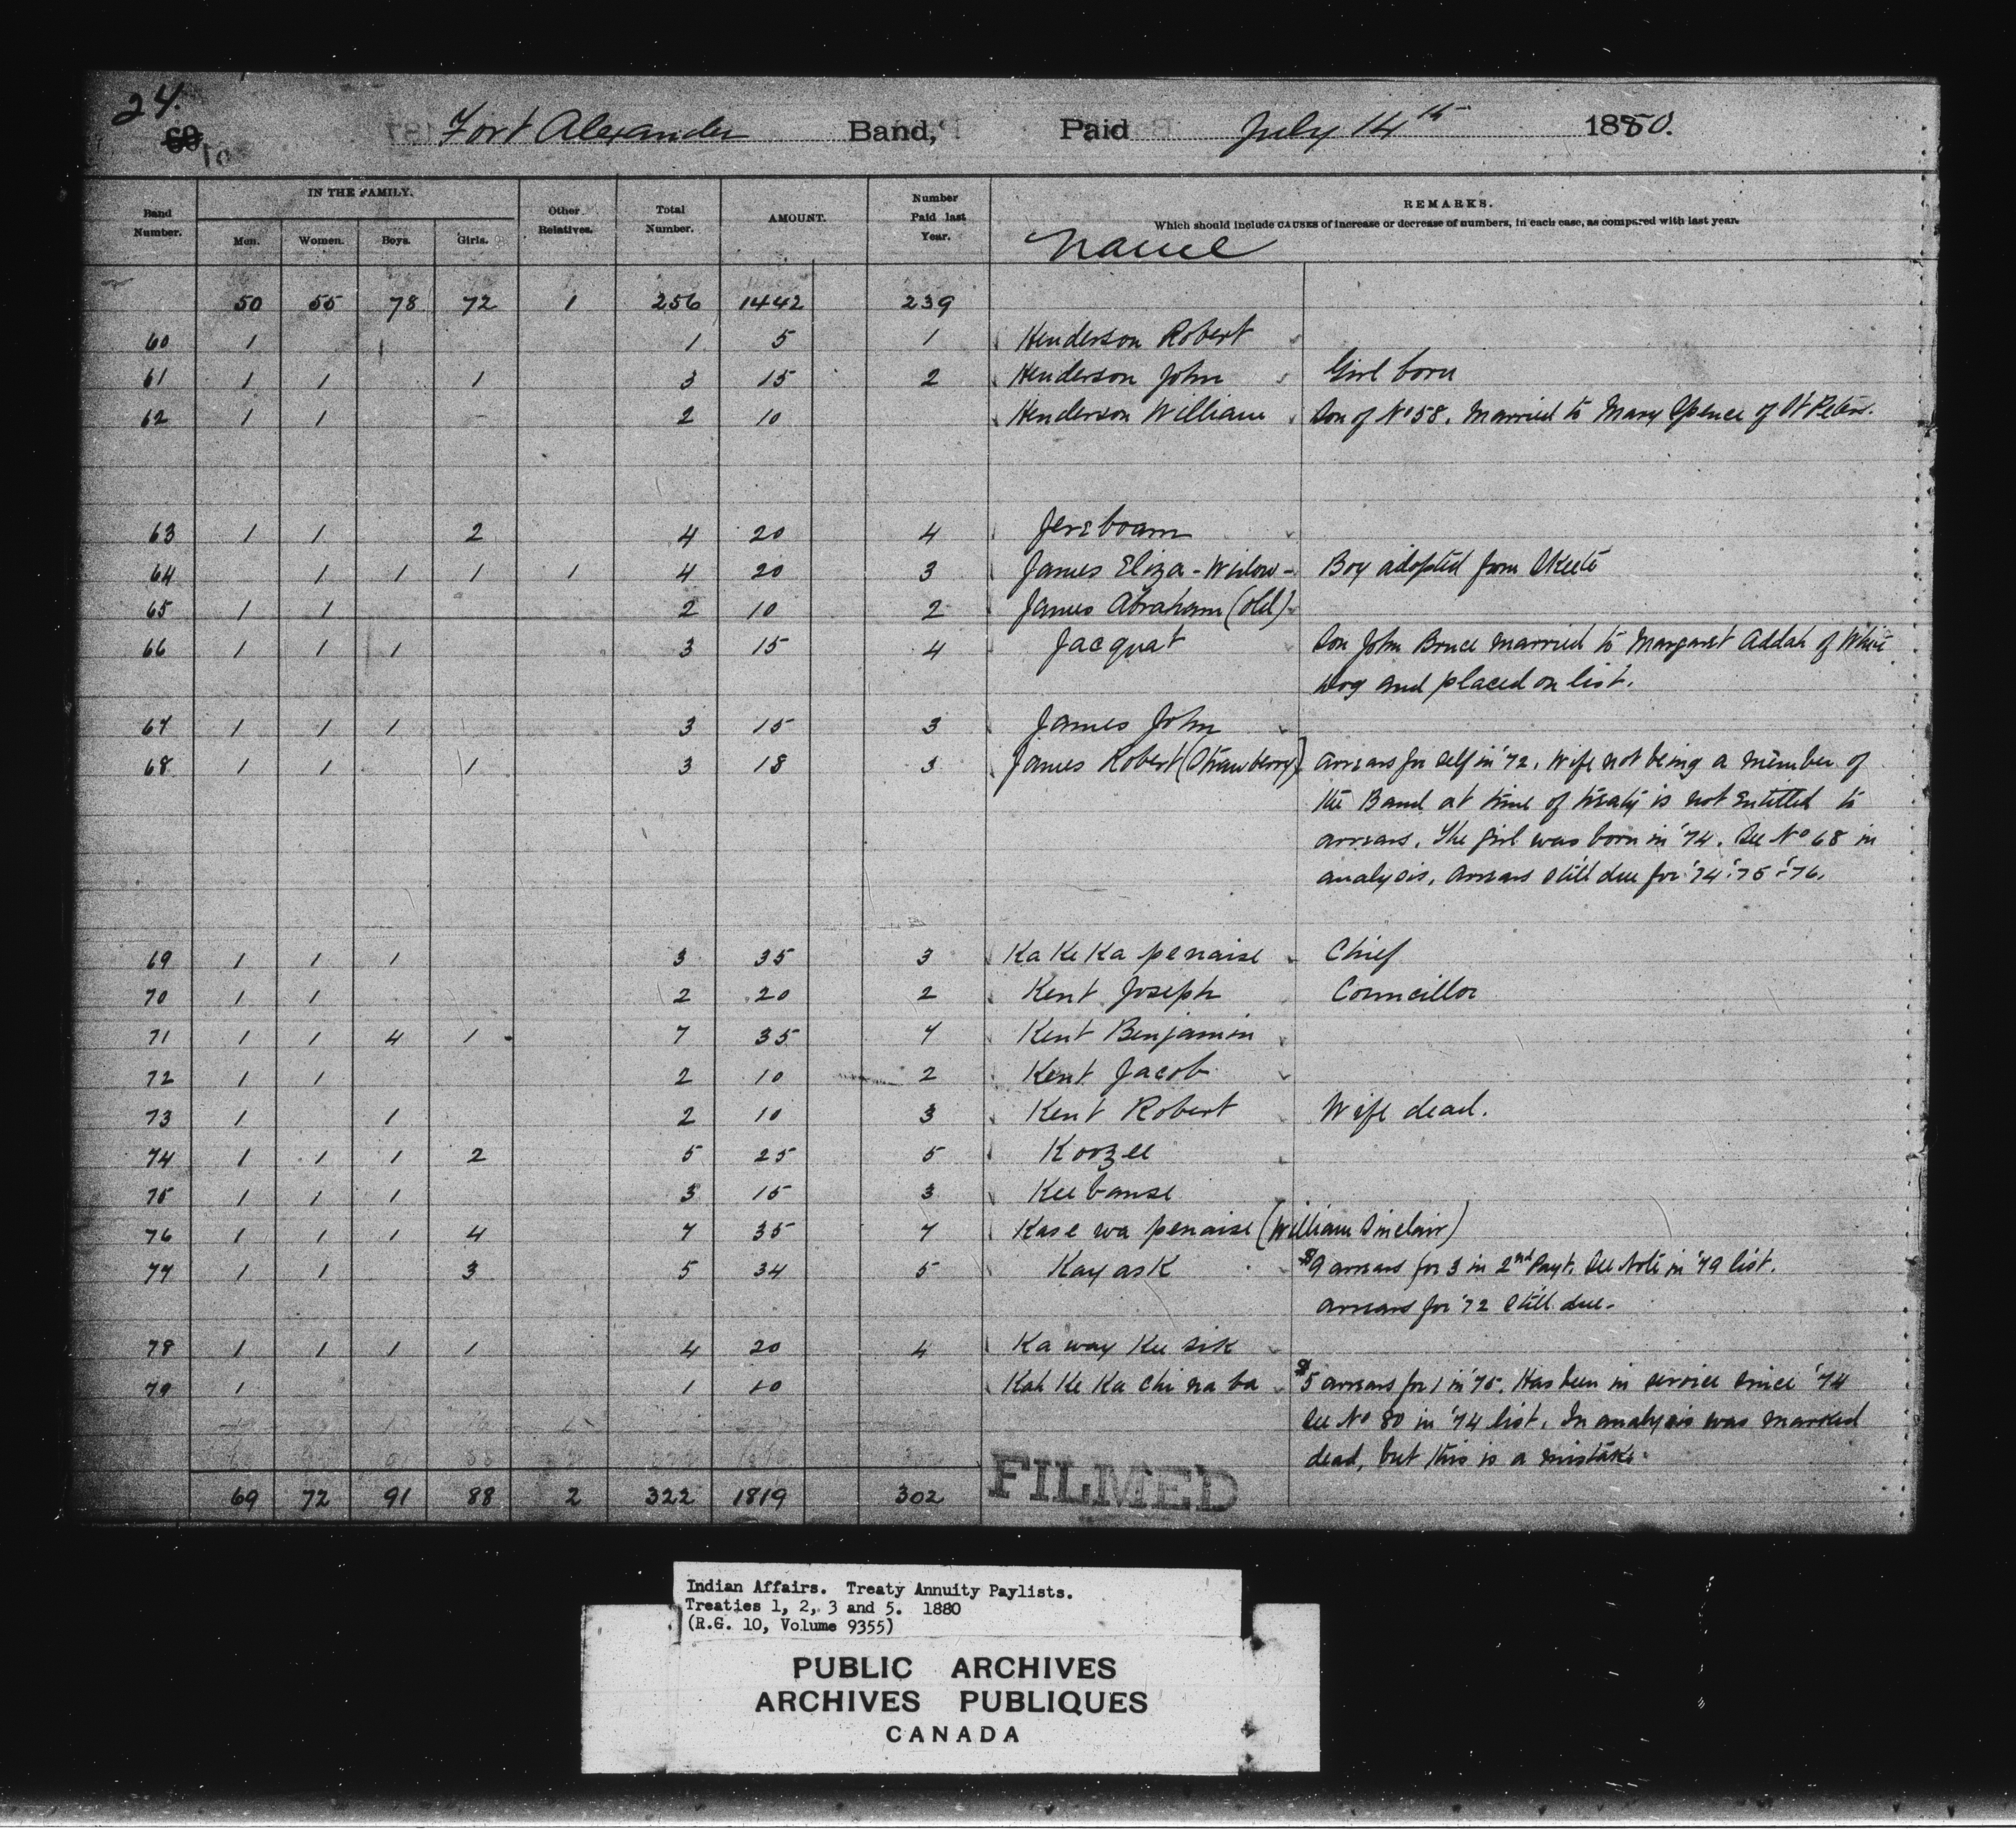 24.
Fort Alexander Band, Paid July 14th 1880.
Band Number. IN THE FAMILY. Men. Women. Boys. Girls. Other Relatives. Total Number. AMOUNT. Number Paid last Year. REMARKS.
Which should include CAUSES of increase or decrease of numbers, in each case, as compared with last year.
Name
50 55 78 72 1 256 1442 239
60 1 1 5 1 Henderson Robert
61 1 1 1 3 15 2 Henderson John Girl born
62 1 1 2 10 Henderson William Son of No 58. Married to Mary Spence of St Peters.
63 1 1 2 4 20 4 Jereboam
64 1 1 1 1 4 20 3 James Eliza - Widow - Boy adopted from
65 1 1 2 10 2 James Abraham (old)
66 1 1 1 3 15 4 Jacquat Son John Bruce married to Margaret Addah of White
Dog and placed on list.
67 1 1 1 3 15 3 James John
68 1 1 1 3 18 3 James Robert (Strawberry) Arrears for self in '72. Wife not being a member of
the Band at time of treaty is not entitled to
arrears. The girl was born in '74. See No 68 in
analysis. Arrears still due for '74 '75 '76.
69 1 1 1 3 35 3 Ka Ke Ka penaise Chief
70 1 1 2 20 2 Kent Joseph Councillor
71 1 1 4 1 7 35 7 Kent Benjamin
72 1 1 2 10 2 Kent Jacob
73 1 1 2 10 3 Kent Robert Wife dead.
74 1 1 1 2 5 25 5 Koozee
75 1 1 1 3 15 3 Keebanse
76 1 1 1 4 7 35 7 Kase wa penaise (William Sinclair)
77 1 1 3 5 34 5 Kayask $9 arrears for 3 in 2nd Payt. See Note in '79 list.
Arrears for '72 still due.
78 1 1 1 1 4 20 4 Ka way Kee sik
79 1 1 10 Kah Ke Ka chi na ba $5 arrears for 1 in '75. Has been in service since '74
See No 80 in '74 list. In analysis was marked
dead, but this is a mistake.
69 72 91 88 2 322 1819 302
FILMED
Indian Affairs. Treaty Annuity Paylists.
Treaties 1, 2, 3 and 5. 1880
(R.G. 10, Volume 9355)
PUBLIC ARCHIVES
ARCHIVES PUBLIQUES
CANADA